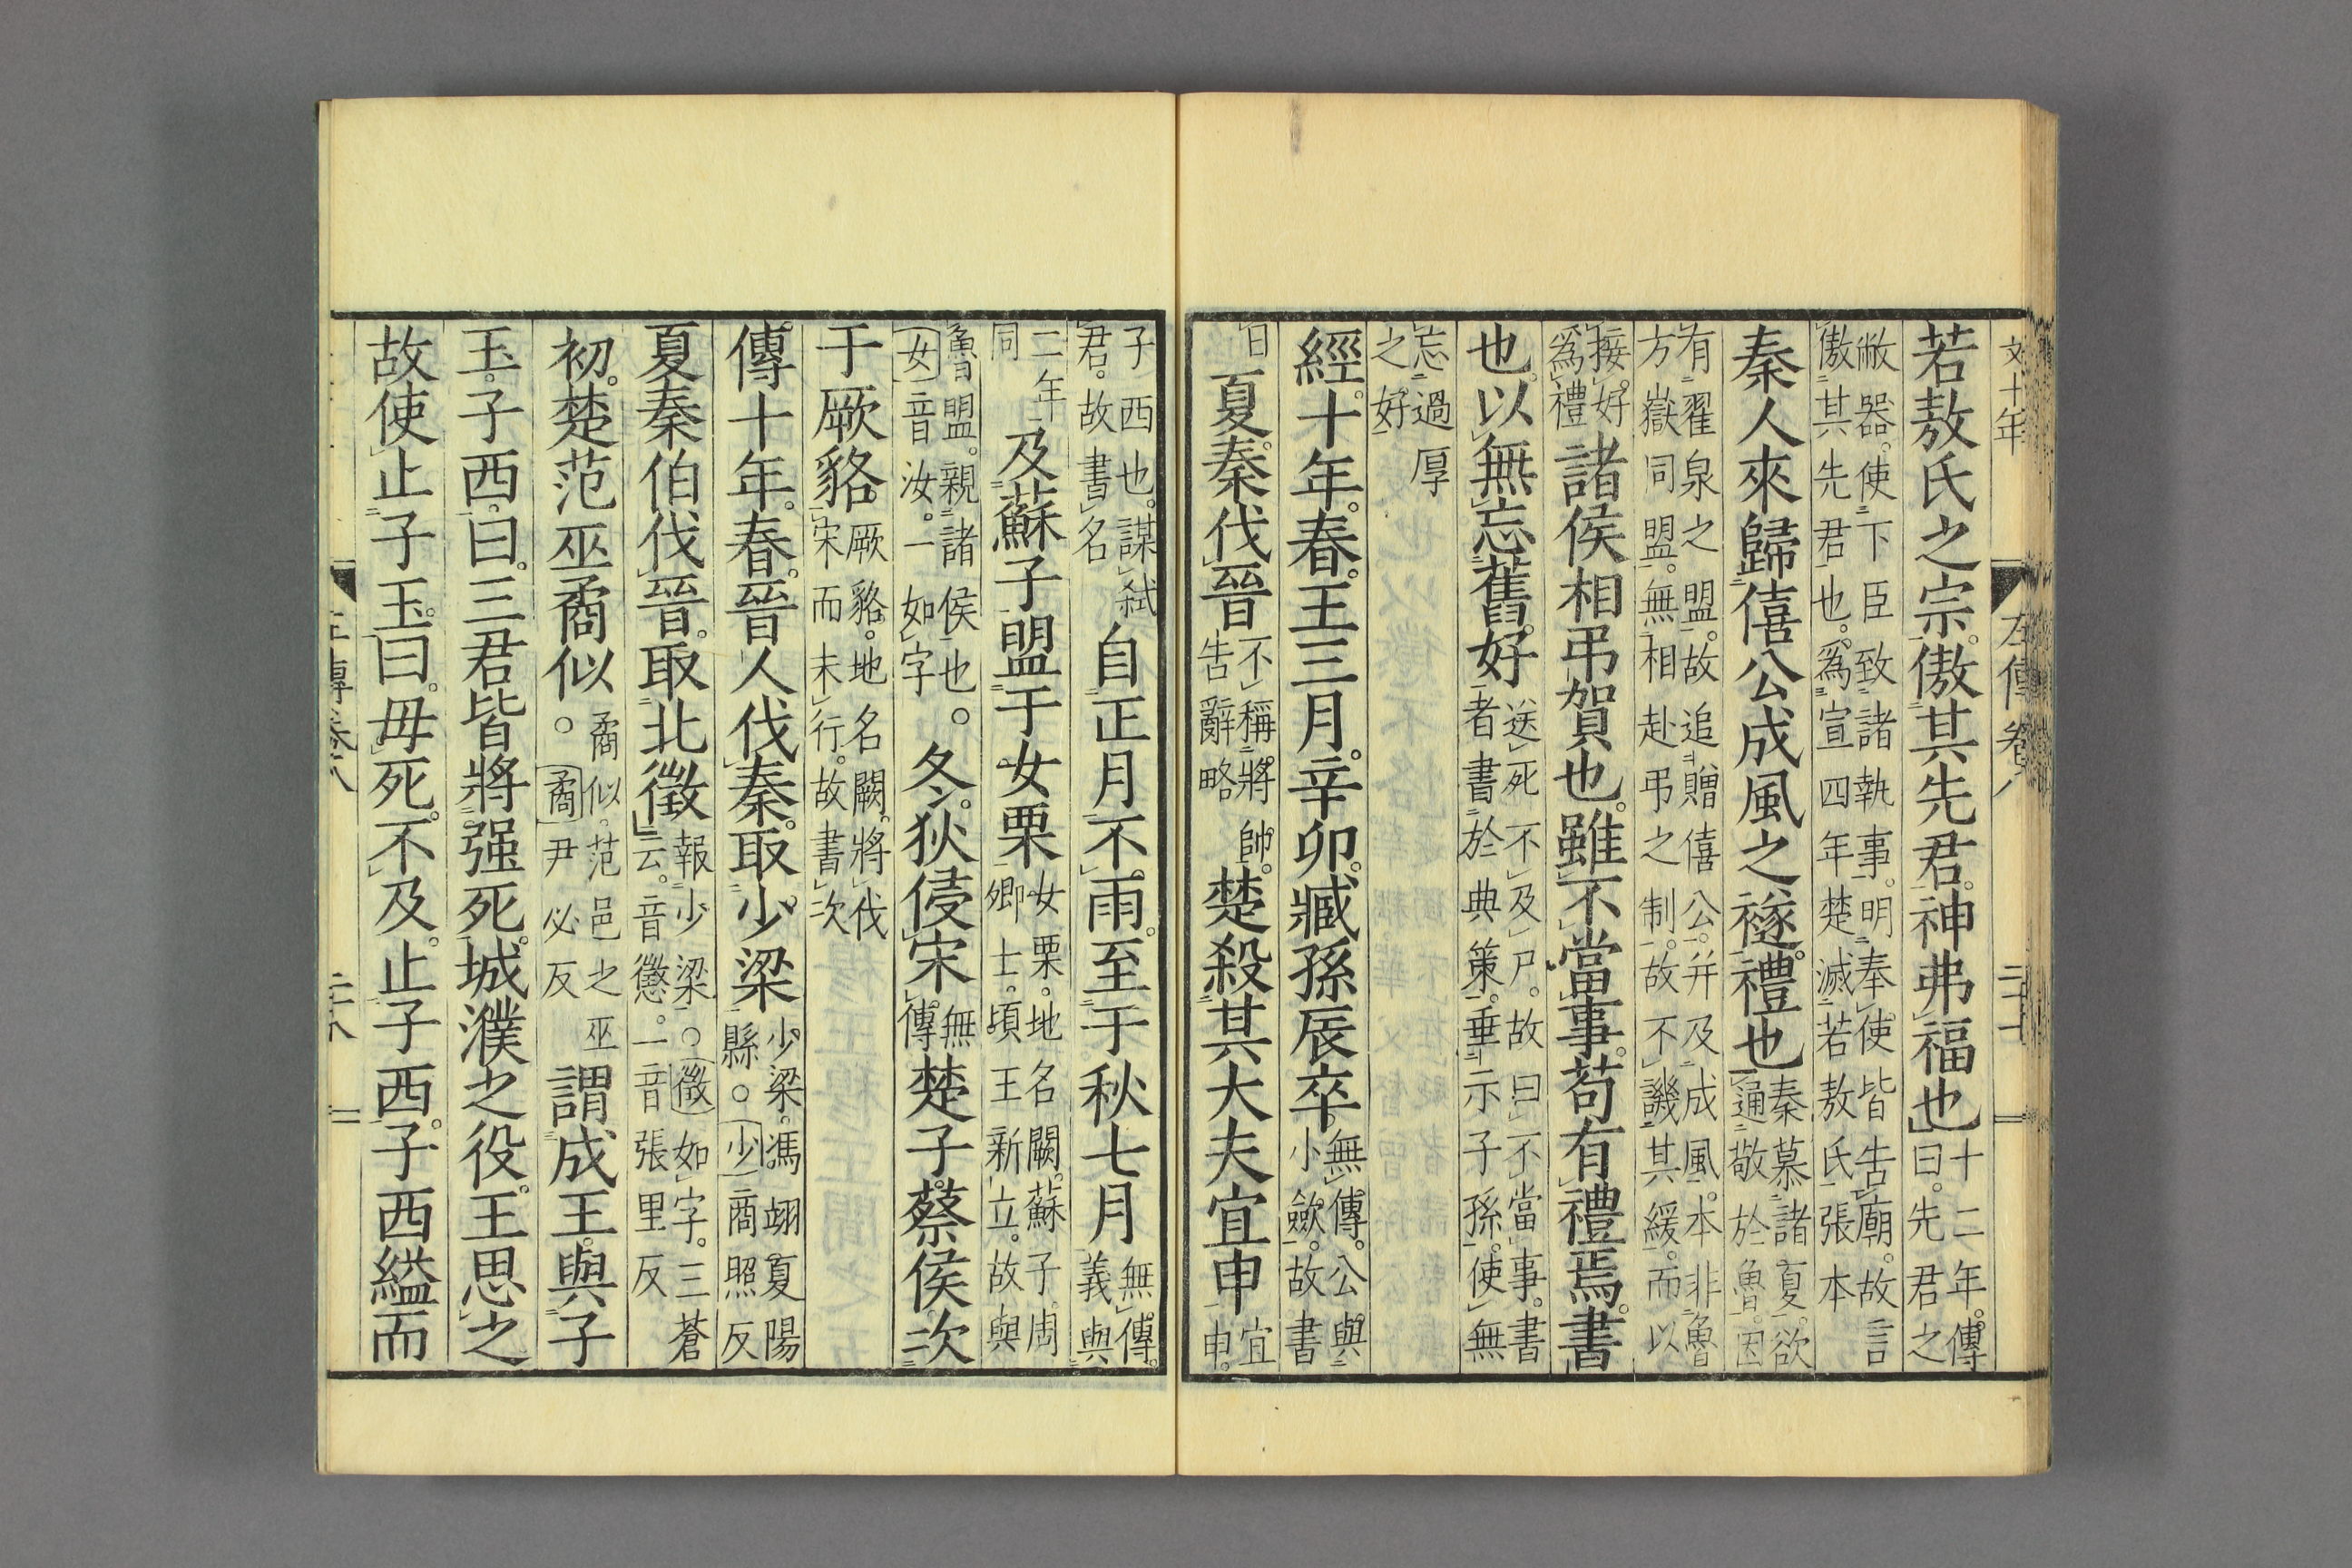 文十年 左傳卷八 二十七
若敖氏之宗。傲其先君。神弗福也十二年。傳曰。先君之
敝器。使下臣致諸執事。明奉使皆告廟。故言
傲其先君也。爲宣四年楚滅若敖氏張本
秦人來歸僖公成風之襚。禮也秦慕諸夏。欲通敬於魯。因
有翟泉之盟。故追贈僖公。并及成風。本非魯
方嶽同盟。無相赴弔之制。故不譏其緩。而以
接好爲禮諸侯相弔賀也。雖不當事。苟有禮焉。書
也。以無忘舊好送死不及尸。故曰不當事。書者書於典策。垂示子孫。使無
忘過厚
之好
經。十年。春。王三月。辛卯。臧孫辰卒無傳。公與小斂。故書
日夏。秦伐晉不稱將帥。告辭略楚殺其大夫宜申宜申。
子西也。謀弑君。故書名自正月不雨。至于秋七月無傳。義與
二年同及蘇子盟于女栗女栗。地名闕。蘇子周卿士。頃王新立。故與
魯盟。親諸侯也。女音汝。一如字○冬。狄侵宋無傳楚子。蔡侯。次
于厥貉厥貉。地名闕。將伐宋而未行。故書次
傳十年。春。晉人伐秦。取少梁少梁。馮翊夏陽縣。○少商照反
夏。秦伯伐晉。取北徵報少梁。○徵如字。三蒼云。音懲。一音張里反
初。楚范巫矞似。矞似。范邑之巫矞尹必反謂成王。與子
玉。子西。曰。三君皆將强死。城濮之役。王思之
故使止子玉。曰。毋死。不及。止子西。子西縊而
左傳卷八 二十八